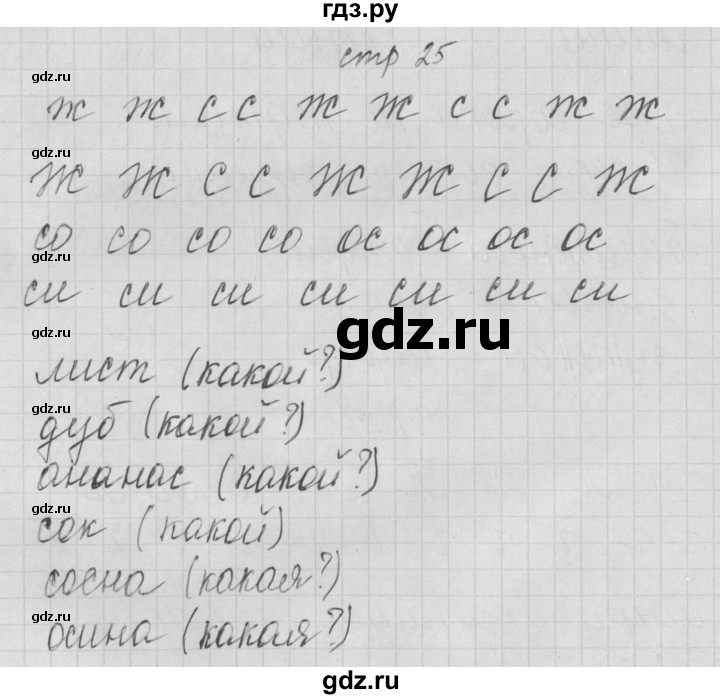 гдз.ру
стр 25
gdz.ru
ж ж с с ж ж с с ж ж
gdz.ru
Ж Ж С С Ж Ж С С Ж
gdz.ru
со со со со ос ос ос ос
си си си си си си си
gdz.ru
gdz.ru
лист (какой?)
gdz.ru
дуб (какой?)
gdz.ru
ананас (какой?)
gdz.ru
сок (какой)
gdz.ru
сосна (какая?)
gdz.ru
осина (какая?)
gdz.ru